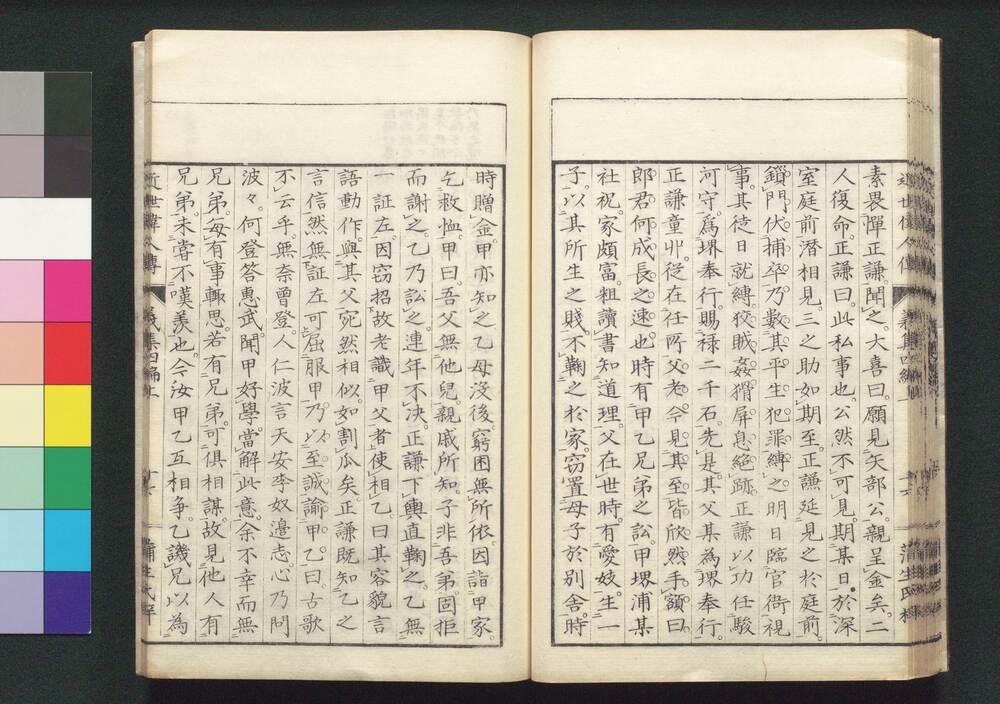 素畏憚正謙聞之大喜曰願見矢部公親呈金矣二
人復命正謙曰此私事也公然不可見期某日於深
室庭前潛相見三之助如期至正謙延見之於庭前
鎖門伏捕卒乃數其平生犯罪縛之明日臨官衙視
事其徒日就縛狡賊姦猾屏息絶跡正謙以功任駿
河守爲堺奉行賜祿二千石先是其父某爲堺奉行
正謙童丱從在任所父老今見其至皆欣然手額曰
郎君何成長之速也時有甲乙兄弟之訟甲堺浦某
社祝家頗富粗讀書知道理父在世時有愛妓生一
子以其所生之賤不鞠之於家窃置母子於別舎時
時贈金甲亦知之乙母沒後窮困無所依因詣甲家
乞救恤甲曰吾父無他兒親戚所知子非吾弟固拒
而謝之乙乃訟之連年不决正謙下輿直鞠之乙無
一証左因窃招故老識甲父者使相乙曰其容貌言
語動作與其父宛然相似如割瓜矣正謙既知乙之
言信然無証左可屈服甲乃以至誠諭甲乙曰古歌
不云乎無奈曾登人仁波言天安李奴邉志心乃問
波々何登答惠武聞甲好學當解此意余不幸而無
兄弟毎有事輙思若有兄弟可俱相謀故見他人有
兄弟未嘗不嘆羨也今汝甲乙互相爭乙譏兄以為
近世偉人傳
義集四編上
蒲生氏梓